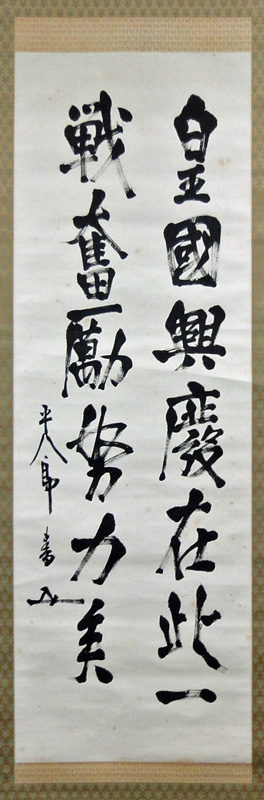 皇國興廢在此一
戦奮勵努力矣
平八郎書